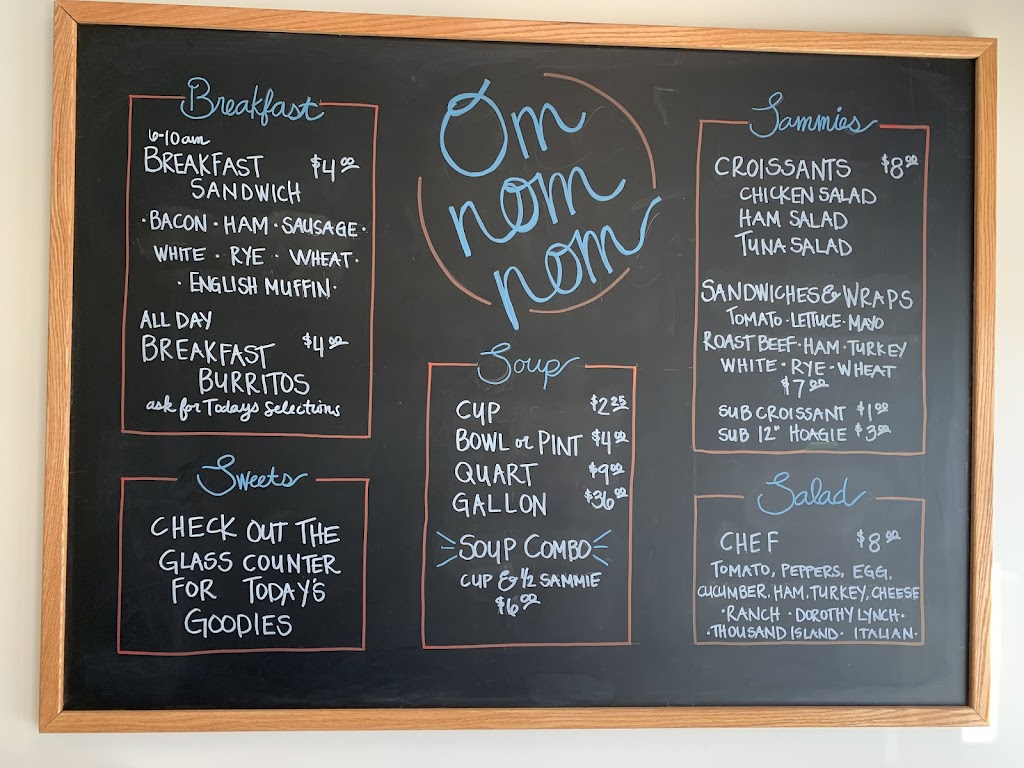 Breakfast
6-10am
BREAKFAST $4.00
SANDWICH
·BACON·HAM·SAUSAGE·
WHITE · RYE · WHEAT·
· ENGLISH MUFFIN·
ALL DAY
BREAKFAST $4.00
BURRITOS
ask for Todays Selections
Sweets
CHECK OUT THE
GLASS COUNTER
FOR TODAY'S
GOODIES
Om
nom
nom
Soup
CUP $2.25
BOWL or PINT $4.00
QUART $9.00
GALLON $36.00
SOUP COMBO
CUP & 1/2 SAMMIE
$6.00
Sammies
CROISSANTS $8.00
CHICKEN SALAD
HAM SALAD
TUNA SALAD
SANDWICHES & WRAPS
TOMATO·LETTUCE·MAYO
ROAST BEEF·HAM·TURKEY
WHITE·RYE·WHEAT
$7.00
SUB CROISSANT $1.00
SUB 12" HOAGIE $3.00
Salad
CHEF $8.00
TOMATO, PEPPERS, EGG,
CUCUMBER, HAM, TURKEY, CHEESE
·RANCH · DOROTHY LYNCH·
·THOUSAND ISLAND· ITALIAN·